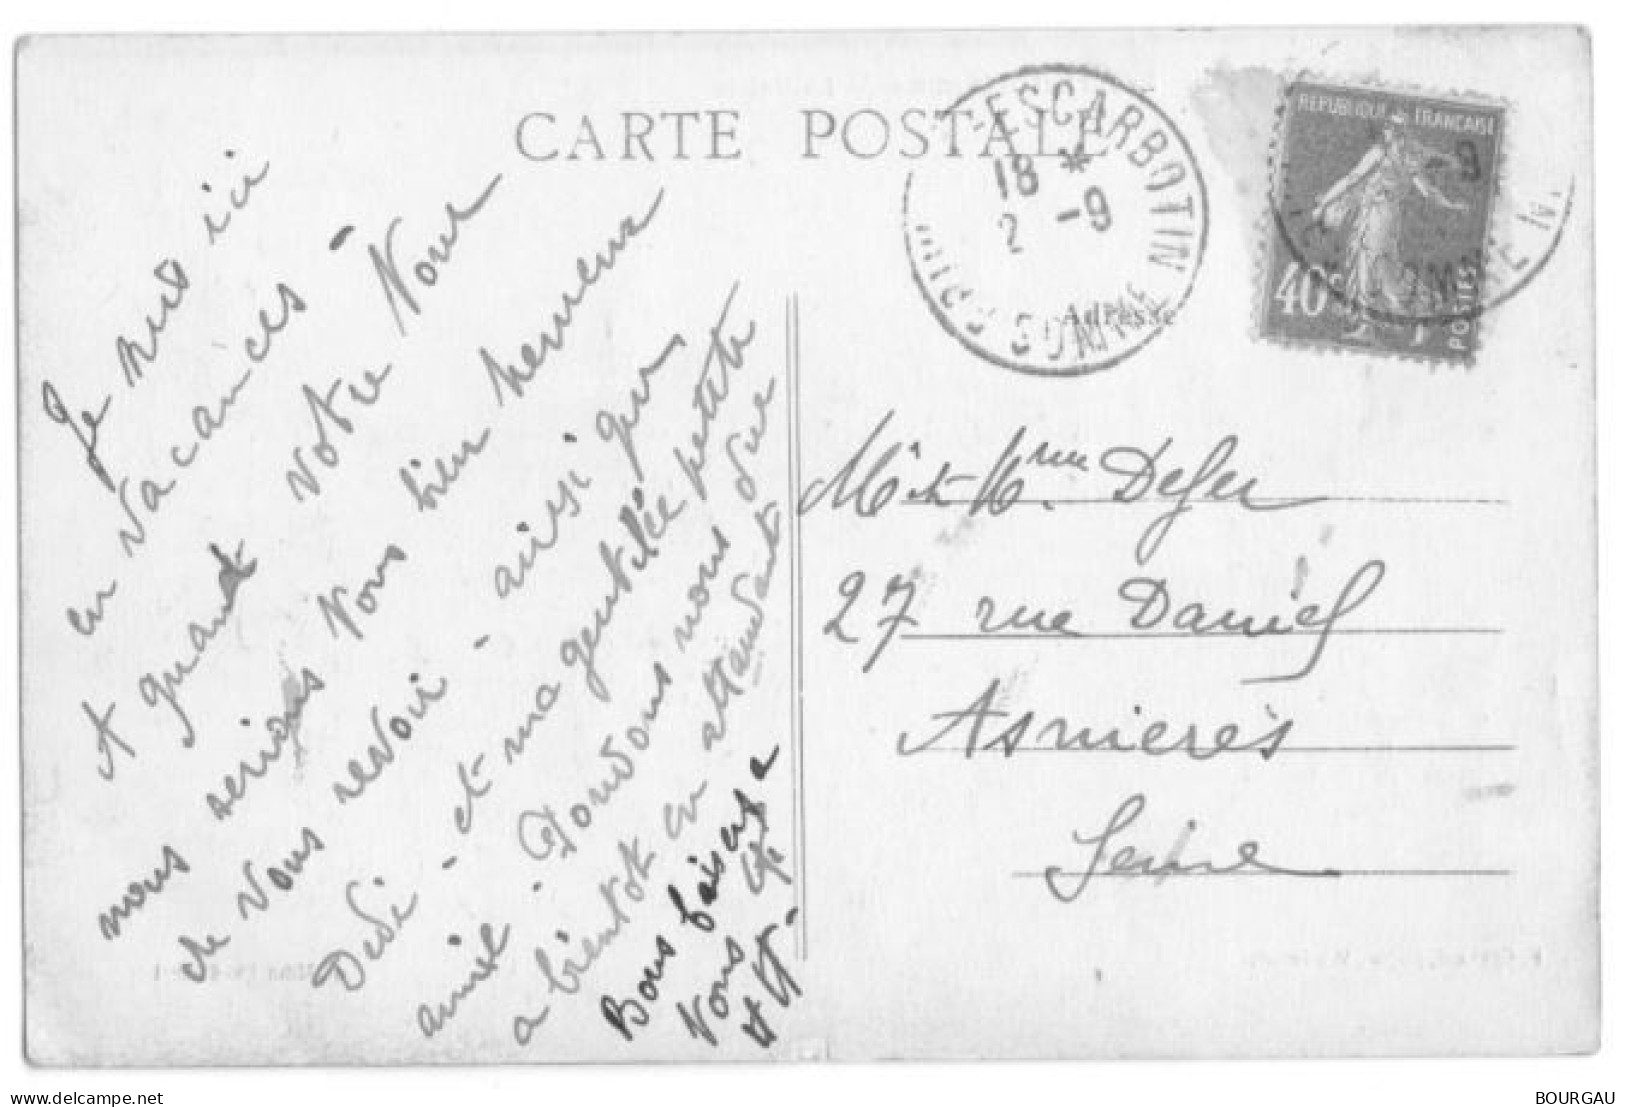 CARTE POSTALE
ESCARBOTIN
18 *
2 -9
SOMME
REPUBLIQUE FRANCAISE
40c
POSTES
-9
Adresse
Je suis ici
en vacances -
A quand votre Nous
nous serions Vous bien heureux
de vous revoir - ainsi que
Dédé - et ma gentille petite
amie. nous
a bientot en attendant
Bons baisers a
Vous
Mr et Mme Defer
27 rue Daniel
Asnieres
Seine
www.delcampe.net
BOURGAU